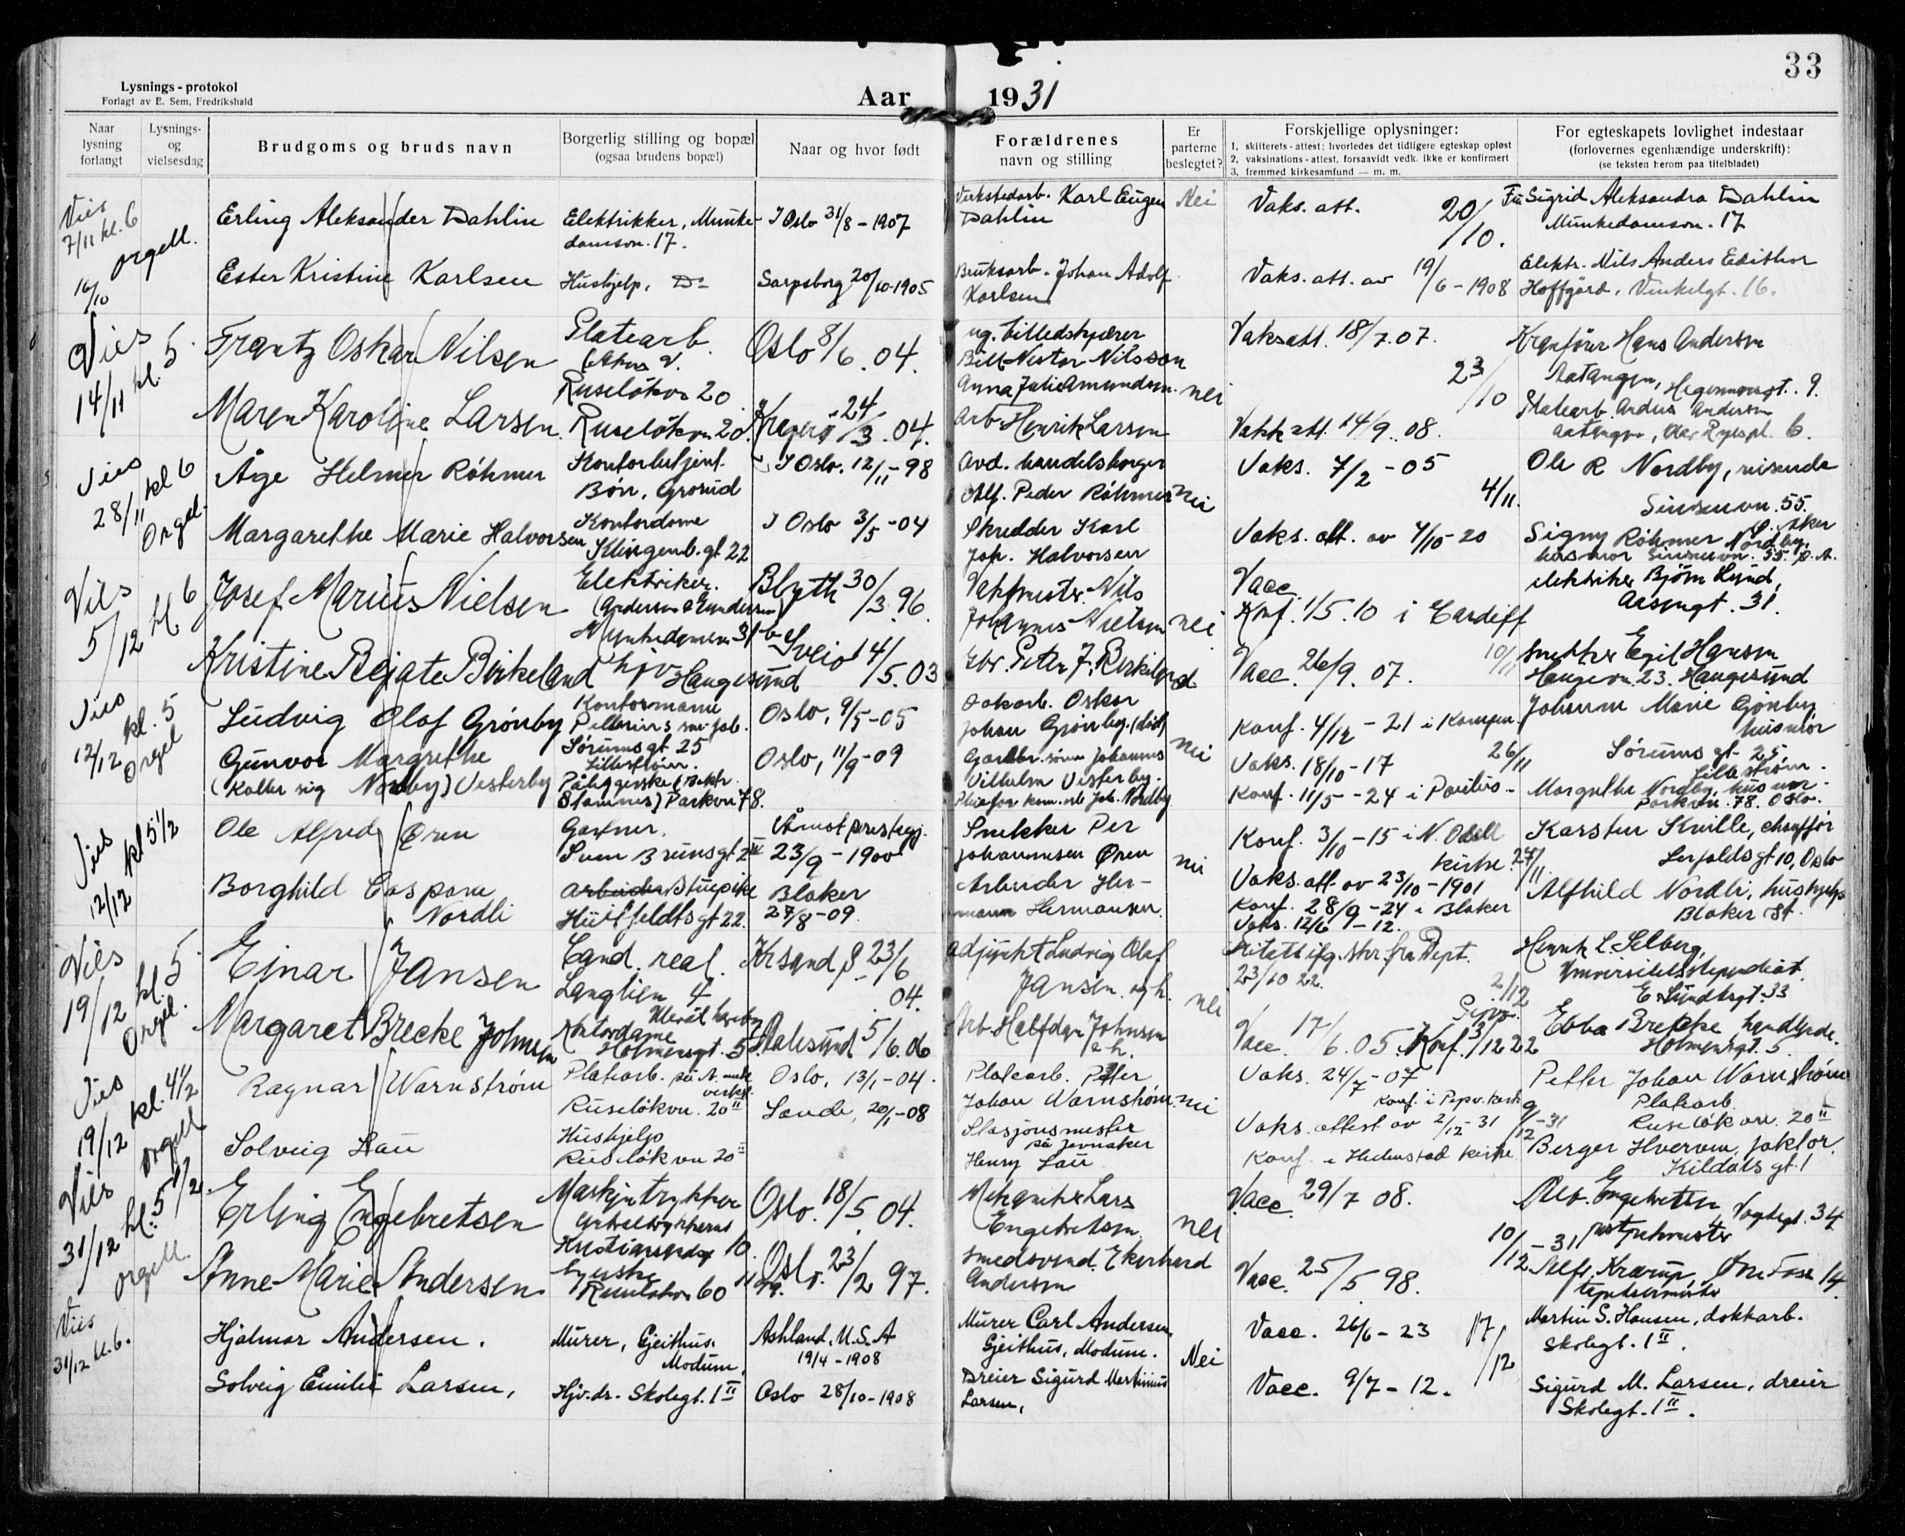 33
Lysnings-protokol
Forlagt av E. Sem, Fredrikshald
Aar 1931
Naar lysning forlangt
Lysnings- og vielsesdag
Brudgoms og bruds navn
Borgerlig stilling og bopæl
(ogsaa brudens bopæl)
Naar og hvor født
Forældrenes
navn og stilling
Er parterne beslegtet?
Forskjellige oplysninger:
1. skifterets-attest: hvorledes det tidligere egteskap opløst
2. vaksinations-attest, forsaavidt vedk. ikke er konfirmert
3. fremmed kirkesamfund — m. m.
For egteskapets lovlighet indestaar
(forlovernes egenhændige underskrift):
(se teksten herom paa titelbladet)
Vies 7/11 kl. 6 orgell.
16/10
Erling Aleksander Dahlin
Elektrikker, Munke-
damsvn. 17.
I Oslo 31/8 - 1907
Verkstedarb. Karl Eugen
Dahlin
Nei
Vaks. att.
20/10.
Fru Sigrid Aleksandra Dahlin
Munkedamsvn. 17
Ester Kristine Karlsen
Hushjelp, Do
Sarpsborg 20/10-1905
Bruksarb. Johan Adolf
Karlsen
Vaks. att. av 19/6 - 1908
Elektr. Nils Anders Edithor
Hoffgård, Vinkelgt. 16.
Vies 14/11 kl. 5
Frantz Oskar Nilsen
Platearb.
(Akers V.
Ruseløkvn 20
Oslo 8/6. 04.
ug. billedskjærer
Nestor Nilsson
Anna Julie Amundsen.
nei
Vaksatt. 18/7.07.
23/10
Kranfører Hans Andersen
Aatangen, 9.
Maren Karoline Larsen
Ruseløkvn 20.
Kragerø 24/3. 04.
Arb. Henrik Larsen
Vakk att. 14/9. 08.
Platearb. Andersen
6.
Vies 28/11 kl 6 Orgel.
Åge Helmer Røhmer
Kontorbetjent.
Bøn, Grorud
I Oslo. 12/11-98
Avd. handelsborger
Alf. Peder Røhmer
nei
Vaks. 7/2 - 05
4/11.
Ole R Nordby, reisende
Sinsenvn. 55.
Margarethe Marie Halvorsen
Kontordame
Klingenb. gt 22
I Oslo 3/5-04
Skredder Karl
Joh. Halvorsen
Vaks. att. av 4/10-20
Signy Røhmer Nordby,
husmor Sinsenvn. 55.
Vies 5/12 kl 6
Josef Marius Nielsen
Elektriker.
(Anderson & Gundersen)
Munkedamsvn 31 b
Blyth 30/3. 96.
Vaktmester Nils
Johannes Nielsen
nei
Vacc
Konf. 1/5.10 i Cardiff
elektriker Bjørn Lund,
Aasengt. 31.
Kristine Beate Birkeland
hjv Haugesund
Sveio 14/5. 03
Gbr. Peter J. Birkeland
Vacc. 26/9. 07.
10/11
snekker Egil Hansen
Haugevn. 23. Haugesund
Vies 12/12 kl. 5 Orgel
Ludvig Olaf Grønby
Kontormann
Pellerins
Sørumsgt 25
Lillestrøm.
Oslo, 9/5-05
Sakarb. Oskar
Johan Grønby. (død)
nei
Konf. 4/12 - 21 i Kampen.
26/11
Johanne Marie Grønby
husmor
Sørums gt 25
Lillestrøm.
Gunvor Margrethe
(kaller sig Nordby) Vesterby
Pålæggerske
Stamnes) Parkvn 78.
Oslo, 11/9-09
Johannes
Vilhelm Vesterby.
Joh. Nordby
Vaks. 18/10-17
Konf. 11/5-24 i Paulus-
Margrethe Nordby, husmor.
Parkvn. 78. Oslo.
Vies 12/12 kl 5 1/2
Ole Alfred Øren
Gartner.
Sven Brunsgt 2 III
Åmot prestegj.
23/9 - 1900
Snekker Per
Johannesen Øren
nei
Konf. 3/10-15 i N. Odell
kirke. 27/11.
Karsten Kville, chauffør
10, Oslo
Borghild Caspara
Nordli
Arbeider Stuepike
Huitfeldtsgt 22.
Blaker
27/8-09.
Arbeider Her-
mann Hermansen.
Vaks. att. av 23/10-1901
Konf. 28/9-24 i Blaker
Vaks. 12/6 -12.
Alfhild Nordli, hushjelp
Blaker st.
Vies 19/12 kl. 5. Orgel.
Einar Jansen
Cand. real.
Langlien 4
Ullevål haveby
Krsand S 23/6 04.
adjunkt Ludvig Olaf
Jansen. og h.
nei
23/10 22.
2/12
Henrik L. Selberg,
Universitetsstipendiat.
E. Sundtsgt. 33
Margaret Brekke Johnsen
Kontordame
Holmensgt. 5
Aalesund 5/6. 06
Arb. Halfdan Johnsen
e. h.
Vacc 17/6. 05. Konf. 3/12 22
Ebba Brekke handlende.
Holmensgt. 5.
Vies 19/12 kl. 4 1/2 orgell
Ragnar Warnstrøm
Platearb. på A. mek
verkst.
Ruseløkvn. 20 II
Oslo, 13/1-04.
Platearb. Petter
Johan Warnstrøm.
nei
Vaks. 24/7-07
Konf. i kirke
9/12-31
Petter Johan Warnstrøm
Platearb.
Ruseløkvn. 20 II
Solveig Lau
Hushjelp
Ruseløkvn 20 II
Sande, 20/1-08
Stasjonsmester
på Jevnaker
Henry Lau
Vaks. attest av 2/12-31
Konf. i kirke
Berger Hverven, faktor.
Kildals gt. 1
Vies 31/12 kl. 5 1/2 orgell.
Erling Engebretsen
Maskintrykker
10.
Oslo. 18/5. 04.
Mekaniker Lars
Engebretsen
nei
Vacc. 29/7 08.
10/12-31
Alb. Engebretsen
34
Anne Marie Andersen
Ruseløkvn 60
Oslo. 23/2 97.
smedsvend Ekenhard
Andersen
Vacc. 25/5 98.
Alf. Krærup,
14.
Vies 31/12 kl. 6.
Hjalmar Andersen.
Murer, Gjeithus.
Modum.
Ashland, U.S.A
19/4 - 1908
Murer Carl Andersen,
Gjeithus, Modum.
Nei
Vacc. 26/6 - 23
17/12
Martin S. Hansen, dokkarb.
Skolegt. 1 II.
Solveig Emilie Larsen,
Hjv. dr. Skolegt. 1 II
Oslo 28/10-1908
Dreier Sigurd Martinius
Larsen,
Vacc. 9/7 - 12.
Sigurd M. Larsen, dreier
Skolegt. 1 II.